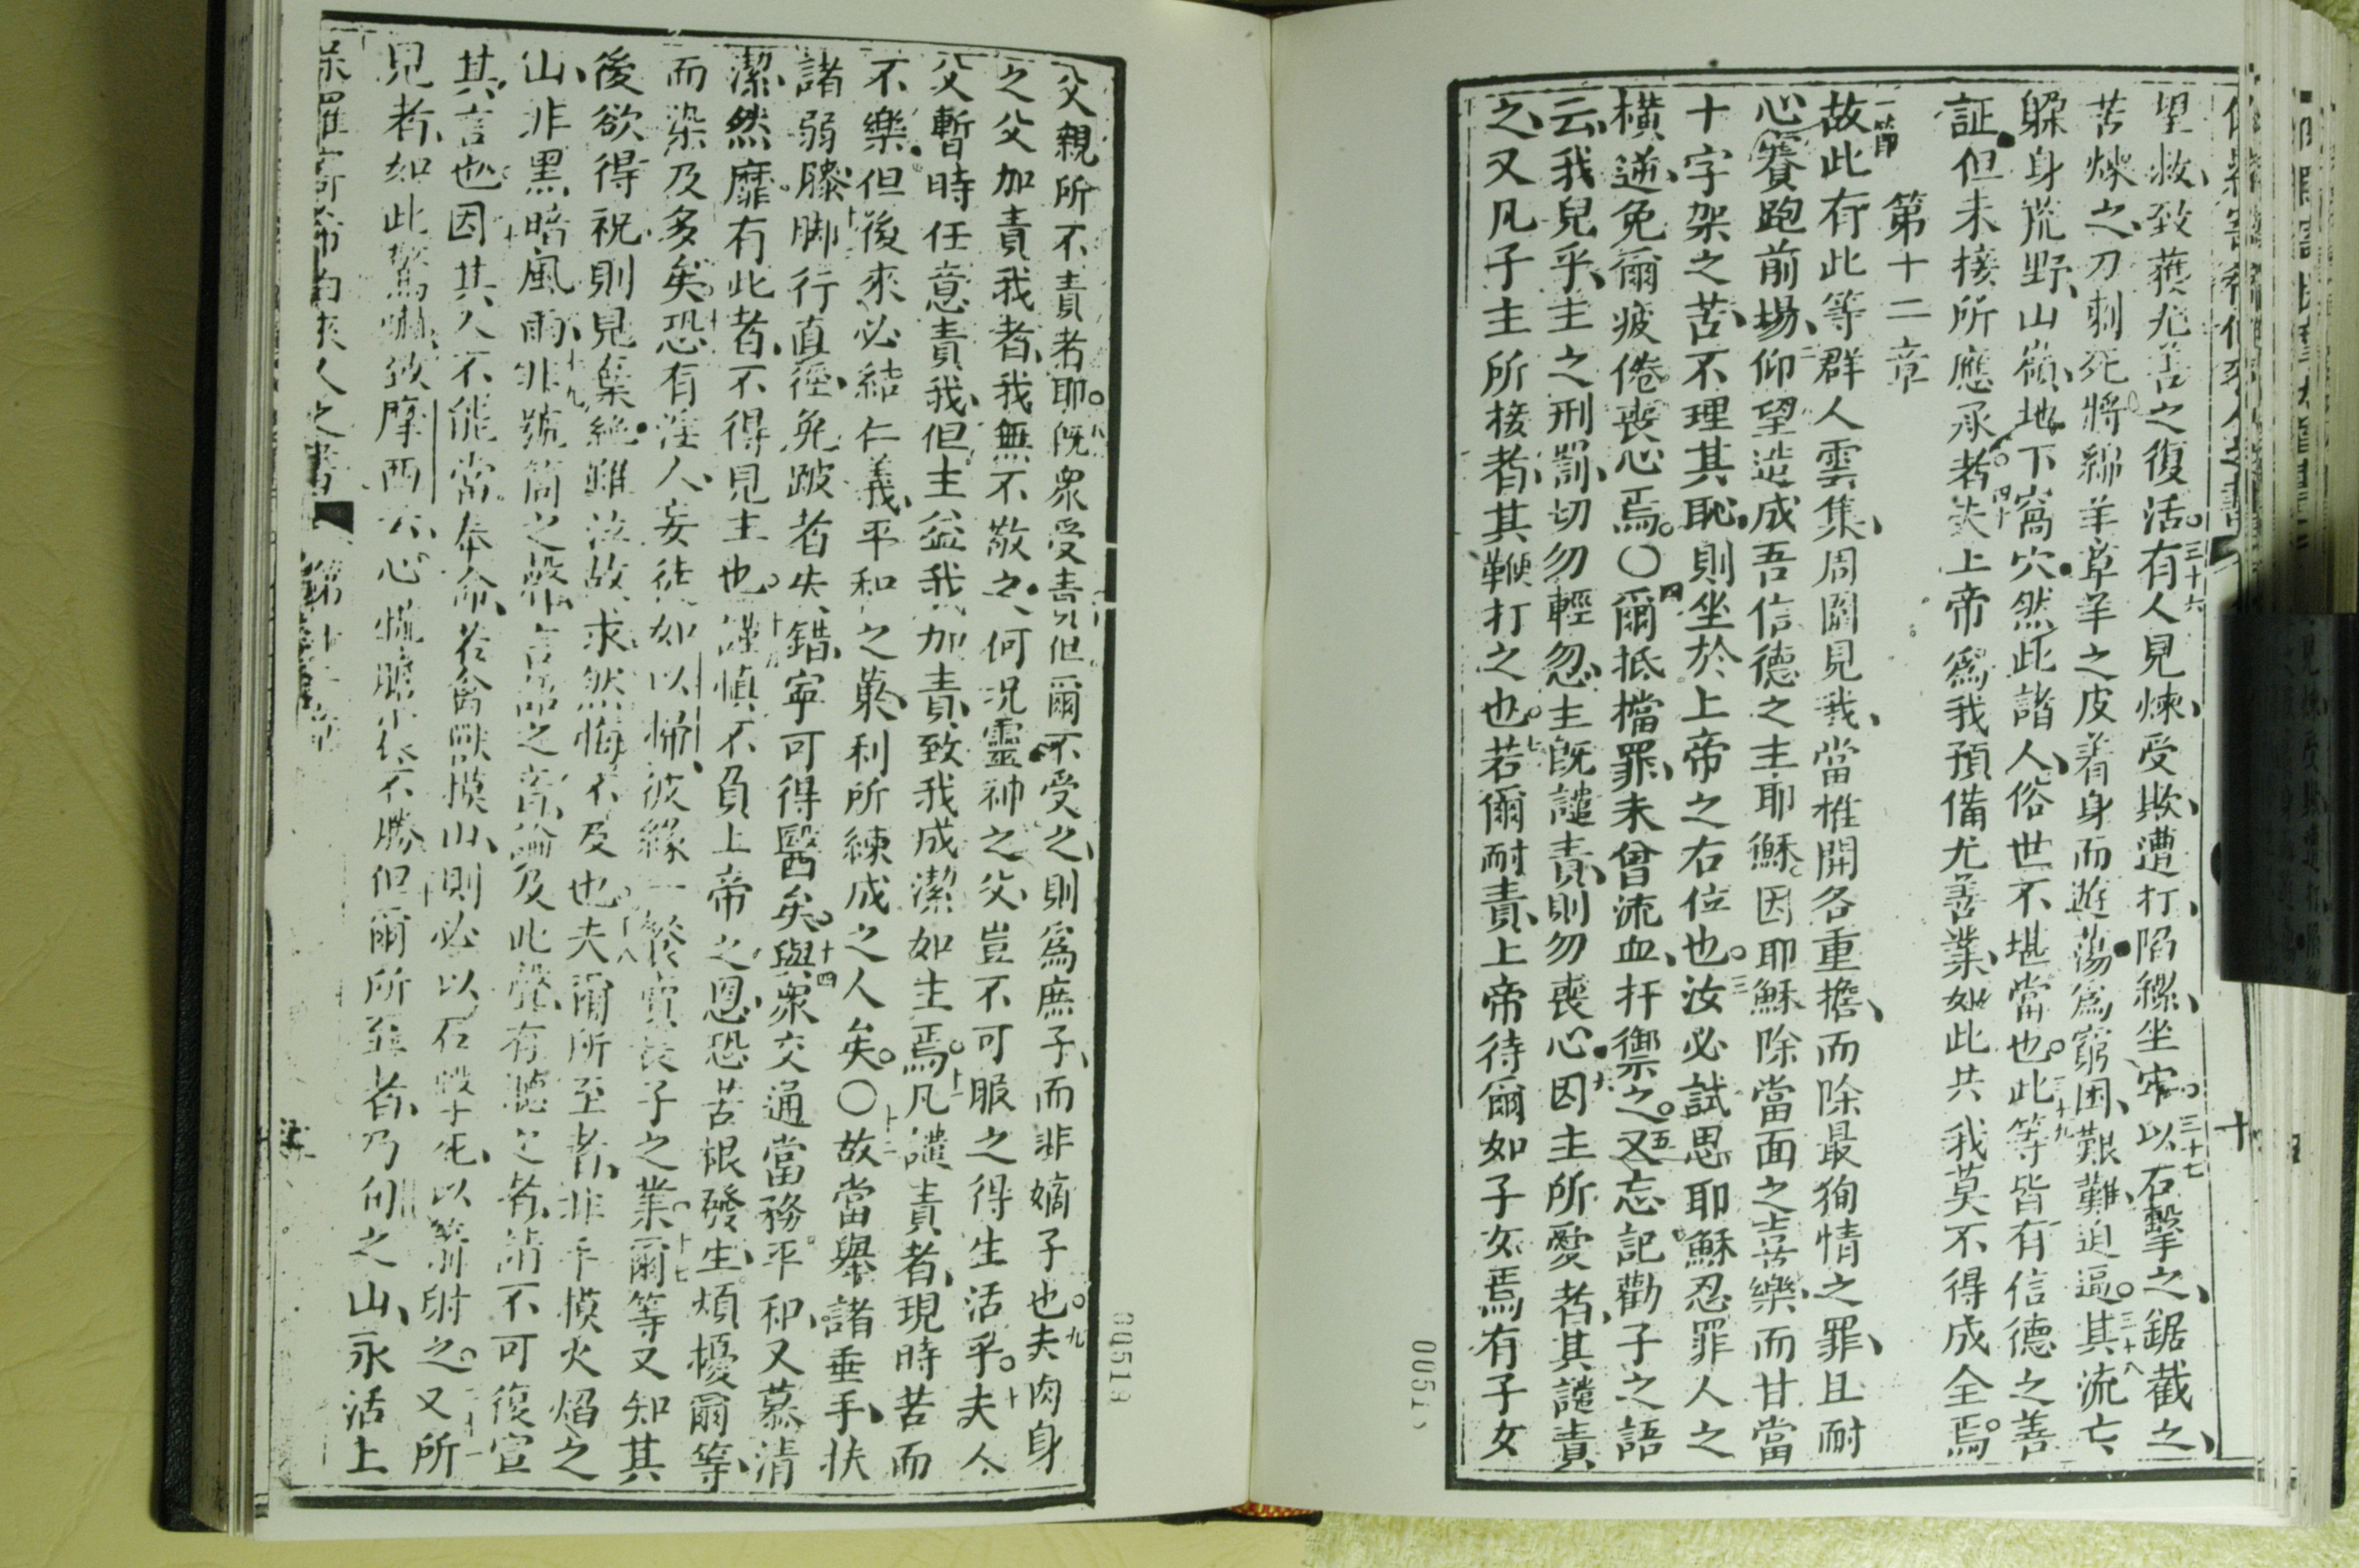 望救致獲尤善之復活。三十六有人見煉、受欺、遭打、陷縲、坐牢。三十七以石擊之、鋸截之、
苦煉之、刀刺死、將綿羊草羊之皮着身而遊蕩、為窮困、艱難、迫逼。三十八其流亡
躲身荒野、山嶺、地下窩穴、然此諸人、俗世不堪當也。三十九此等皆有信德之善
証、但未接所應承者。四十夫上帝為我預備尤善業、如此共我莫不得成全焉。
第十二章
一節故此有此等群人雲集、周圍見我、當推開各重擔、而除最狥情之罪、且耐
心賽跑前場、二仰望造成吾信德之主耶穌。因耶穌除當面之吉樂、而甘當
十字架之苦、不理其恥、則坐於上帝之右位也。三汝必試思耶穌忍罪人之
橫逆、免爾疲倦喪心焉。〇四爾抵擋罪、未曾流血扞禦之。五又忘記勸子之語
云、我兒乎、主之刑罰、切勿輕忽、主既譴責、則勿喪心。六因主所愛者、其譴責
之、又凡子主所接者、其鞭打之也。七若爾耐責、上帝待爾如子女焉、有子女
父親所不責者耶。八既衆受責、但爾不受之、則為庶子、而非嫡子也。九夫肉身
之父加責我者、我無不敬之、何況靈神之父、豈不可服之得生活乎。十夫人
父暫時任意責我、但主益我、加責、致我成潔如主焉。十一凡譴責者、現時苦而
不樂、但後來必結仁義平和之菓、利所練成之人矣。〇十二故當舉諸垂手、扶
諸弱膝、十三脚行直徑、免跛者失錯、寧可得醫矣。十四與衆交通、當務平和、又慕清
潔、然靡有此者、不得見主也。十五謹慎不負上帝之恩、恐苦根發生、煩擾爾等、
而染及多矣。十六恐有淫人、妄徒、如以㑄、彼緣一餐賣長子之業。十七爾等又知其
後欲得祝、則見棄絕、雖泣故求、然悔不及也。十八夫爾所至者、非手摸火焰之
山、非黑暗風雨、十九非號筒之聲、言語之音、論及此聲、有聽之者、請不可復宣
其言也。二十因其人不能當奉命、若禽獸摸山、則必以石擊死、以箭射之。二十一又所
見者、如此驚嚇、致摩西云、心慌膽小、當不勝、但爾所至者、乃旬之山、永活上
保羅寄希伯來人之書 第十二章
00518